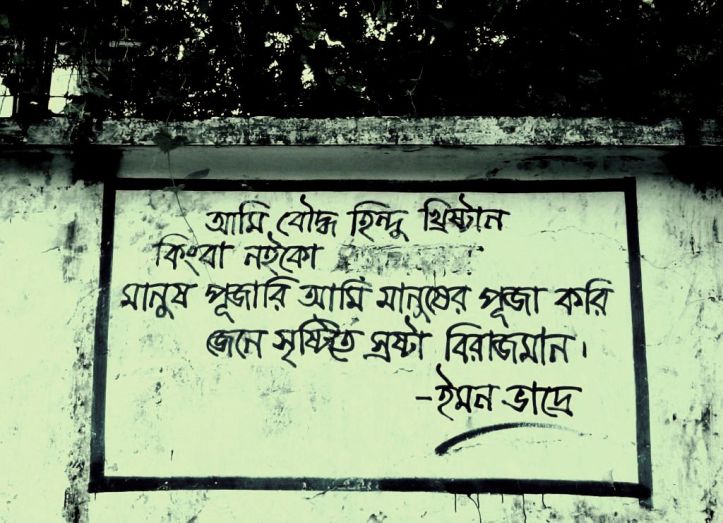 আমি বৌদ্ধ হিন্দু খ্রিষ্টান
কিংবা নইকো
মানুষ পূজারি আমি মানুষের পূজা করি
জেনে সৃষ্টিতে স্রষ্টা বিরাজমান।
-ইমন ভাদ্রে